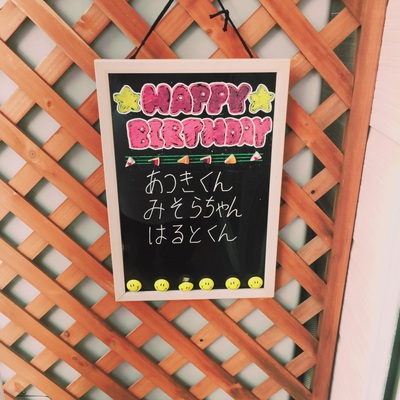 HAPPY
BIRTHDAY
あつきくん
みそらちゃん
はるとくん